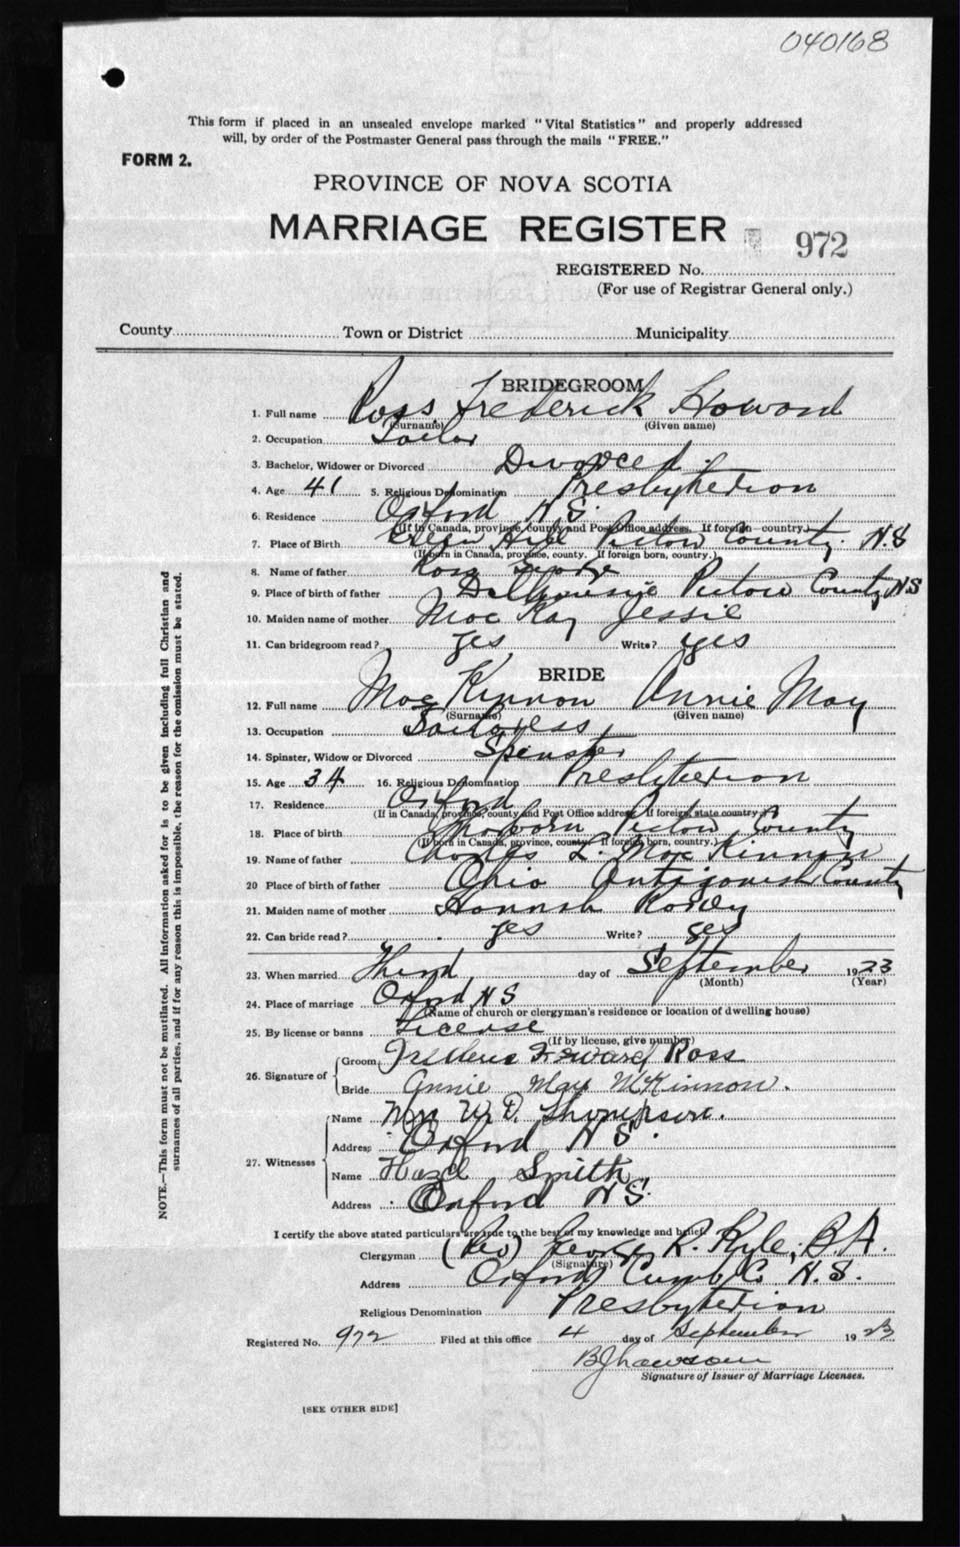 040168
This form if placed in an unsealed envelope marked "Vital Statistics" and properly addressed
will, by order of the Postmaster General pass through the mails "FREE."
FORM 2.
PROVINCE OF NOVA SCOTIA
MARRIAGE REGISTER
972
REGISTERED No.
(For use of Registrar General only.)
County Town or District Municipality
BRIDEGROOM
1. Full name Ross Frederick Howard
(Surname) (Given name)
2. Occupation Tailor
3. Bachelor, Widower or Divorced Divorced.
4. Age 41 5. Religious Denomination Presbyterian
6. Residence Oxford N.S.
(If in Canada, province, county and Post Office address. If foreign country.)
7. Place of Birth Green Hill Pictou County. N.S
(If born in Canada, province, county. If foreign born, country.)
8. Name of father Ross
9. Place of birth of father Dalhousie Pictou County N.S
10. Maiden name of mother MacKay Jessie
11. Can bridegroom read? yes Write? yes
BRIDE
12. Full name MacKinnon Annie May
(Surname) (Given name)
13. Occupation Tailoress
14. Spinster, Widow or Divorced Spinster
15. Age 34 16. Religious Denomination Presbyterian
17. Residence Oxford
(If in Canada, province, county and Post Office address. If foreign, state country.)
18. Place of birth Thorborn Pictou County
(If born in Canada, province, county. If foreign born, country.)
19. Name of father Charles L. MacKinnon
20 Place of birth of father Ohio Antigonish County
21. Maiden name of mother Hannah
22. Can bride read? yes Write? yes
23. When married Third day of September 1923
(Month) (Year)
24. Place of marriage Oxford N S
(Name of church or clergyman's residence or location of dwelling house)
25. By license or banns License
(If by license, give number)
26. Signature of Groom Frederic Howard Ross
Bride Annie May McKinnon.
27. Witnesses Name Mrs W. D. Thompson.
Address Oxford N S.
Name Hazel Smith
Address Oxford N S.
I certify the above stated particulars are true to the best of my knowledge and brief.
Clergyman (Rev) George R. Kyle, B.A.
(Signature)
Address Oxford Cumb. Co. N.S.
Religious Denomination Presbyterian
Registered No. 972 Filed at this office 4 day of September 1923
Signature of Issuer of Marriage Licenses.
[SEE OTHER SIDE]
NOTE.—This form must not be mutilated. All information asked for is to be given including full Christian and
surnames of all parties, and if for any reason this is impossible, the reason for the omission must be stated.